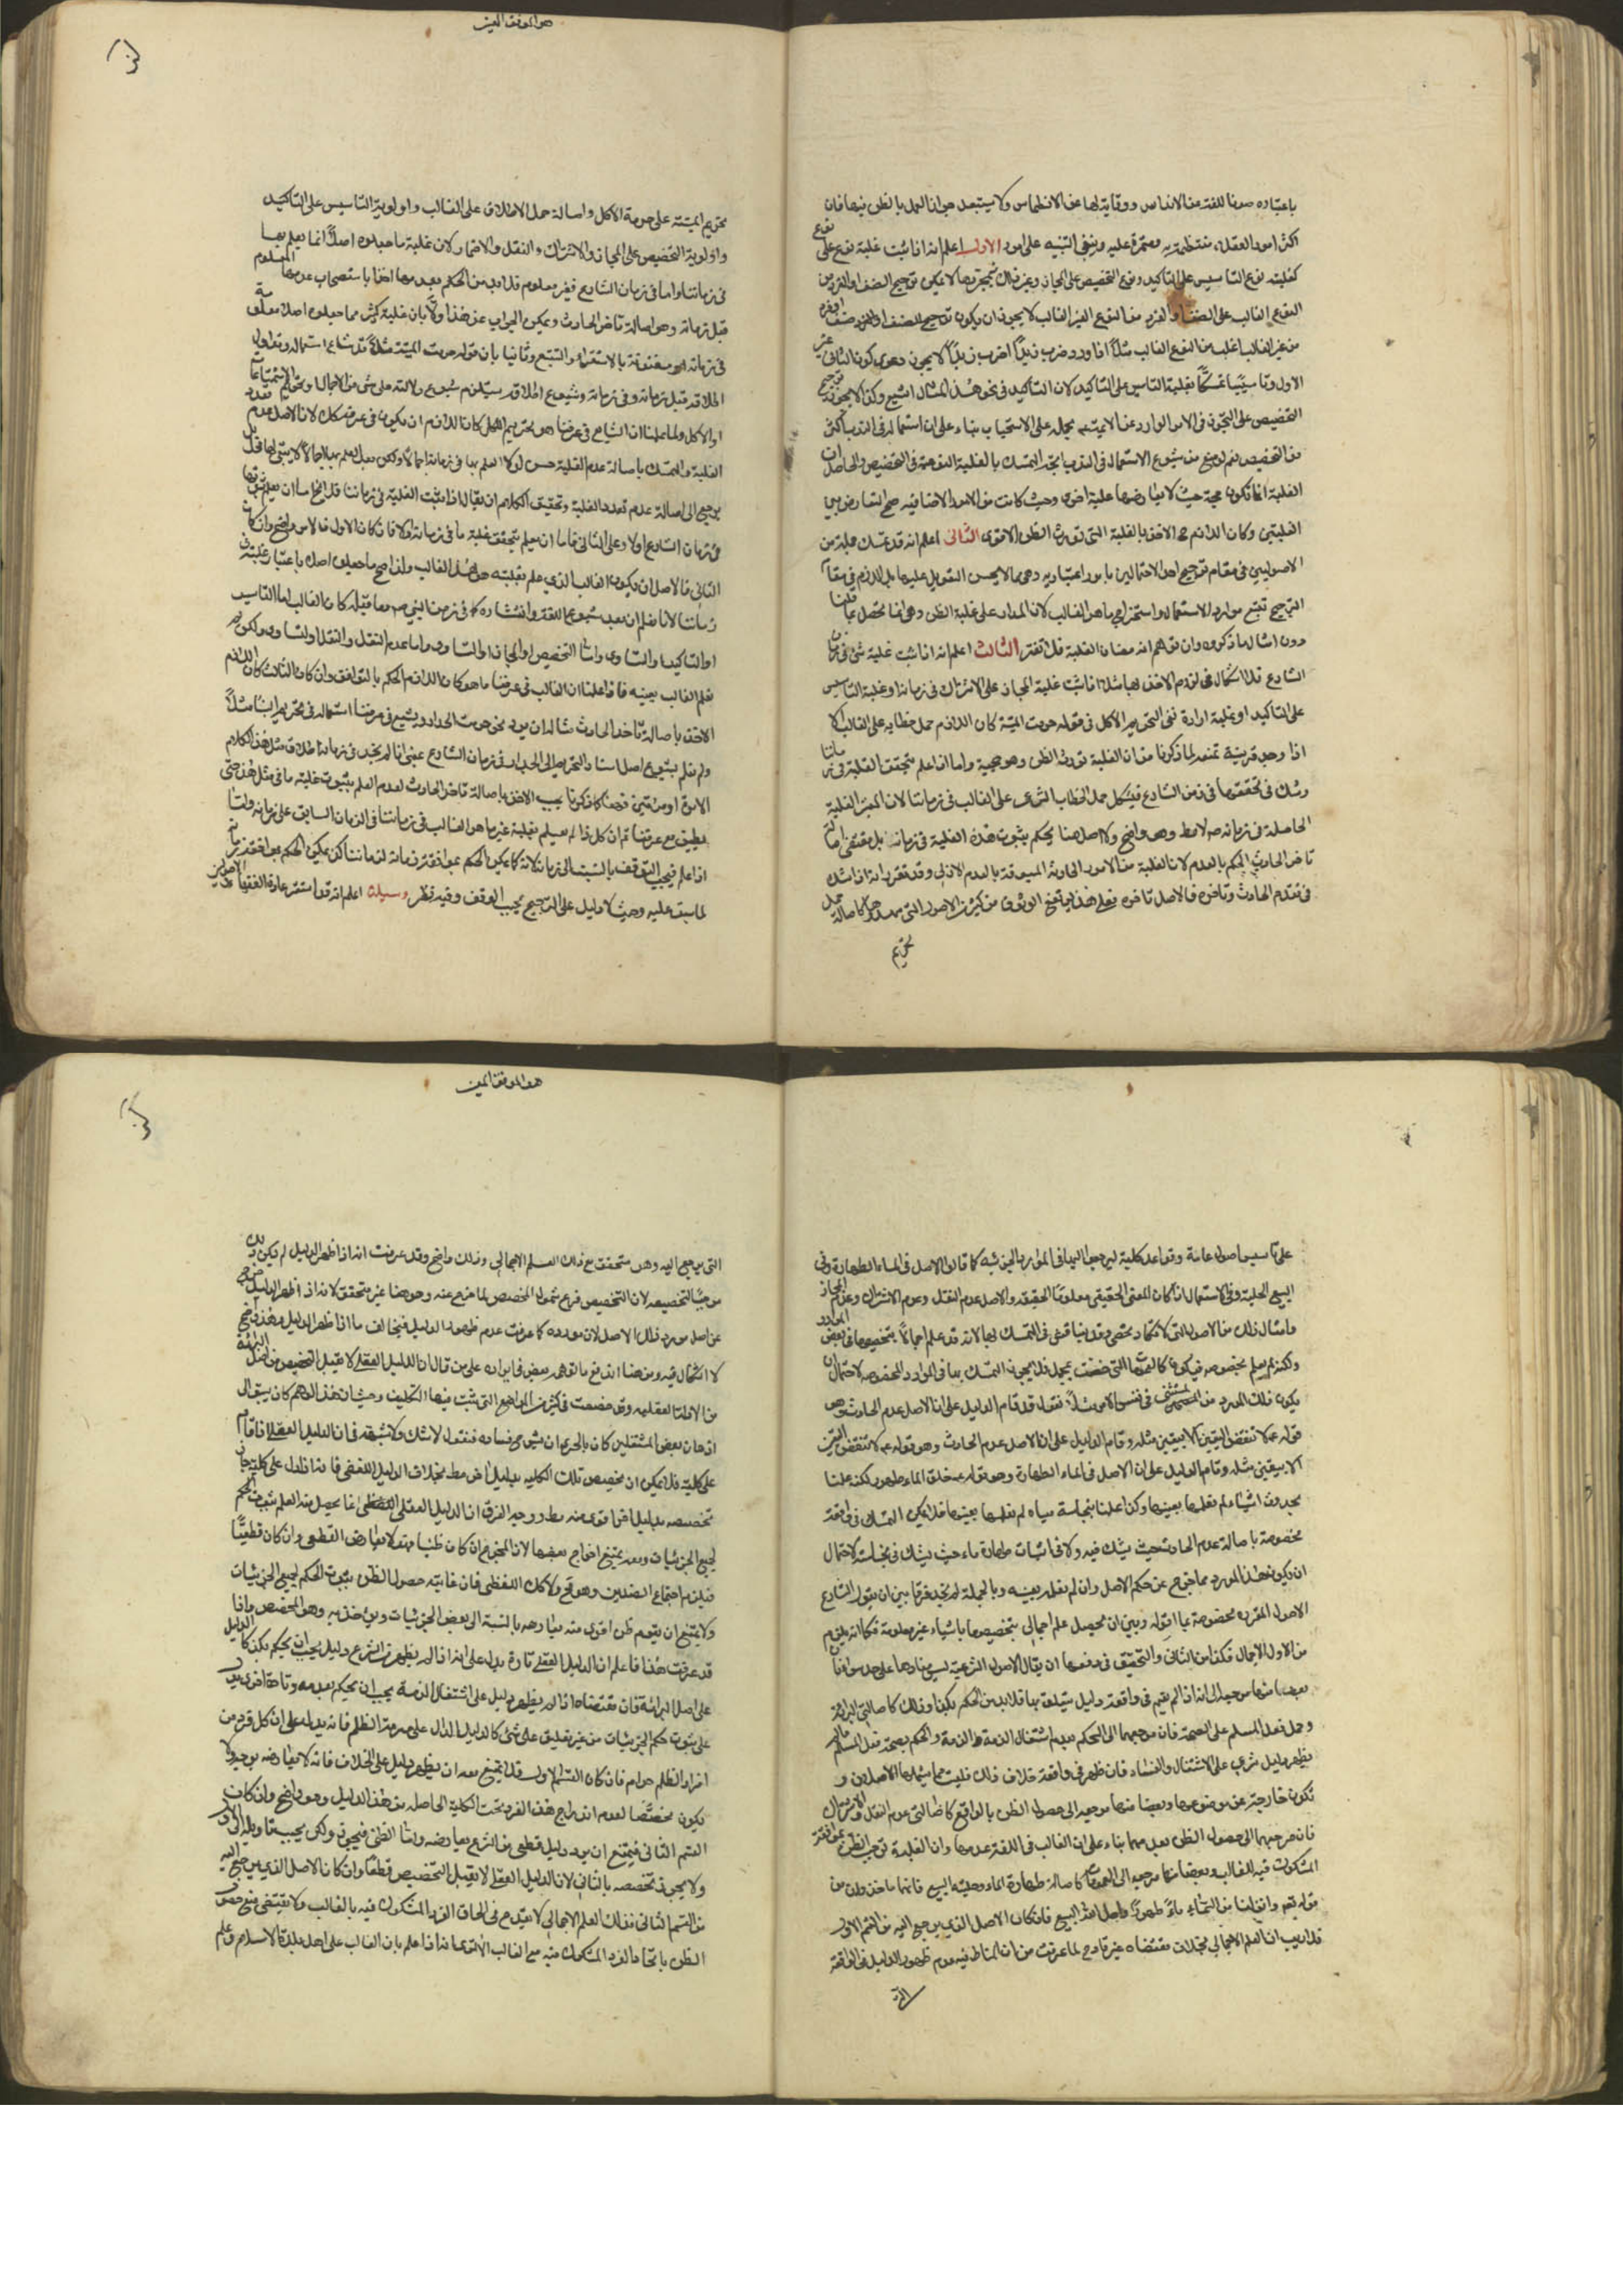 باعتباره صونا للفته عن الاندراس ووقاية لها عن الانطماس ولا يستبعد جواز العمل بالظن فيها فان
اكثر امور العقلاء منتظمة به معتمرة عليه وينبغى التنبيه على امور الاول اعلم انه اذا ثبت غلبة نوع على نوع
كغلبة نوع التاسيس على التاكيد ونوع التخصيص على المجاز وغير ذلك فبمجردها لا يمكن ترجيح الصنف او الفرد من
النوع الغالب على الصنف او الفرد من النوع الغير الغالب لا يجوز ان يكون ترجيح للصنف او الفرد
من غير الغالب اغلب من النوع الغالب مثلا اذا ورد ضرب زيدا اضرب زيدا لا يجوز دعوى كون الثانى غير
الاول وتاسيسا تمسكا بغلبة التاسيس على التاكيد لان التاكيد فى نحو هذا المثال اشيع وكذا لا يجوز ترجيح
التخصيص على التجوز فى الامر الوارد عن الائمة بحمله على الاستحباب بناء على ان استعماله فى الندب اكثر
من التخصيص نعم لو منع من شيوع الاستعمال فى الندب اتجه التمسك بالغلبة النوعية فى التخصيص والحاصل ان
الغلبة انما تكون حجة حيث لا يعارضها غلبة اخرى وحيث كانت من الامور الاضافيه صح التعارض بين
الغلبتين وكان اللازم ح الاخذ بالغلبة التى تورث الظن الاقوى الثانى اعلم انه قد تمسك جملة من
الاصوليين فى مقام ترجيح احد الاحتمالين بامور اعتباريه وهى مما لا يحسن التعويل عليها بل اللازم فى مقام
الترجيح تتبع موارد الاستعمال واستخراج ما هو الغالب لان المدار على غلبة الظن وهى انما تحصل بما قلنا
دون امثال ما ذكروه وان توهم انه مضان الغلبة فلا تغتر الثالث اعلم انه اذا ثبت غلبة شئ فى زمان
الشارع فلا اشكال فى لزوم الاخذ بها مثلا اذا ثبت غلبة المجاز على الاشتراك فى زمانه او غلبة التاسيس
على التاكيد او غلبة ارادة نفى التحريم الاكل فى قوله حرمت الميتة كان اللازم حمل خطابه على الغالب الا
اذا وجد قرينة تمنعه لما ذكرنا من ان الغلبة تورث الظن وهو حجية واما اذا علم بتحقق الغلبة فى زماننا
وشك فى تحققها فى زمن الشارع فيشكل حمل الخطاب الشرعى على الغالب فى زماننا لان المعتبر الغلبة
الحاصلة فى زمانه ص لا مط وهو واضح ولا اصل هنا يحكم بثبوت هذه الغلبة فى زمانه بل مقتضى اصالة
تاخر الحادث الحكم بالعدم لان الغلبة من الامور الحادثة المسبوقة بالعدم الازلى وقد تقرر انه اذا شك
فى تقدم الحادث وتاخره فالاصل تاخره فعلى هذا يرتفع الوثوق من كثير من الاصول التى مهدوها كاصالة حمل
تحريم
هو الموفق المعين
تحريم الميتة على حرمة الاكل واصالة حمل الاطلاق على الغالب واولوية التاسيس على التاكيد
واولوية التخصيص على المجاز والاشتراك والنقل والاضمار لان غلبة ما جعلوه اصلا انما يعلم بها
فى زماننا واما فى زمان الشارع فغير معلوم فلا بد من الحكم بعدمها اخذا باستصحاب عدمها المعلوم
قبل زمانه وهو اصالة تاخر الحادث ويمكن الجواب عن هذا اولا بان غلبة كثير مما جعلوه اصلا معلومة
فى زمانه ص متفقة بالاستقراء والتتبع وثانيا بان قوله حرمت الميتة مثلا قد شاع استعماله وتداول
اطلاقه قبل زمانه وفى زمانه وشيوع اطلاقه يستلزم شيوع دلالته على شئ من الاجمال وتحريم الاستمتاع
او الاكل ولما علمنا ان الشايع فى عرفنا هو تحريم الاكل كان اللازم ان يكون فى عرفه كك لان الاصل عدم تعدد
الغلبة والتمسك باصالة عدم الغلبة حسن لو لا العلم بها فى زمانه اجمالا ولكن بعد العلم بها اجمالا لا يبقى لها محل بل
يرجع الى اصالة عدم تعدد الغلبة وتحقيق الكلام ان يقال اذا ثبت الغلبة فى زماننا فلا يخ اما ان يعلم بثبوتها
فى زمان الشارع اولا وعلى الثانى فاما ان يعلم بتحقق غلبة ما فى زمانه او لا فان كان الاول فالامر واضح وان كان
الثانى فالاصل ان يكون الغالب الذى علم بغلبته هو هذا الغالب ولذا صح ما جعلوه اصلا باعتبار غلبته فى
زماننا لانا نعلم ان بعد شيوع اللغة وانتشاره كما فى زمن النبى ص وما قبله كان الغالب اما التاسيس
او التاكيد او التساوى واما التخصيص او المجاز او التساوى واما عدم النقل والنقل او التساوى ولكن لم
نعلم الغالب بعينه فاذا علمنا ان الغالب فى عرفنا ما هو كان اللازم الحكم بالتوافق وان كان الثالث كان اللازم
الاخذ باصالة تاخر الحادث مثاله ان يرد نحو حرمت الجدار ويشيع فى عرفنا استعماله فى تحريم البناء مثلا
ولم نعلم بشيوع اصل اسناد التحريم الى الجدار فى زمان الشارع بمعنى انا لم نجد فى زمانه اطلاق مثل هذا الكلام
الا مرة او مرتين فهنا كما ذكرنا يجب الاخذ باصالة تاخر الحادث لعدم العلم بثبوت غلبة ما فى مثل هذا حتى
يطبق مع عرفنا ثم ان كل ذا لم يعلم بغلبة غير ما هو الغالب فى زماننا فى الزمان السابق على زمانه واما
اذا علم فيجب التوقف بالنسبة الى زمانه لانه كما يمكن الحكم بموافقة زمانه لزماننا كذا يمكن الحكم بموافقة زمانه
لما سبق عليه وحيث لا دليل على الترجيح يجب الوقف وفيه نظر وسيلة اعلم انه قد استقر عادة الفقهاء والاصوليين
على تاسيس اصول عامة وقواعد كلية ليرجع اليها فى الموارد الجزئية كما قالوا الاصل فى الماء الطهارة وفى
البيع الحلية وفى الاستعمال اذا كان المعنى الحقيقى معلوما الحقيقة والاصل عدم النقل وعدم الاشتراك وعدم المجاز
وامثال ذلك من الاصول التى لا تكاد تحصى وقد يناقش فى التمسك بها لانه قد علم اجمالا بتخصيصها فى بعض الموارد
ولكن لم يعلم بخصوصه فيكون كالعمومات التى خصصت بمجمل فلا يجوز التمسك بها فى الموارد المخصوصه لاحتمال ان
يكون ذلك المورد من المستثنى فى نفس الامر مثلا نقول قد قام الدليل على ان الاصل عدم الحادث وهو
قوله ع لا تنقض اليقين الا بيقين مثله وقام الدليل على ان الاصل عدم الحادث وهو قوله ع لا تنقض اليقين
الا بيقين مثله وقام الدليل على ان الاصل فى الماء الطهارة وهو قوله ع خلق الماء طهورا لكنه علمنا
بحدوث اشياء لم نعلمها بعينها وكذا علمنا بنجاسة مياه لم نعلمها بعينها فلا يمكن التمسك فى واقعة
مخصوصة باصالة عدم الحادث حيث يشك فيه ولا فى اثبات طهارة ماء حيث يشك فى نجاسته لاحتمال
ان يكون هذا المورد مما خرج عن حكم الاصل وان لم نعلمه بعينه وبالجملة لم نجد فرقا بين ان يقول الشارع
الاصول المقررة مخصوصة بما اقوله وبين ان يحصل علم اجمالى بتخصيصها باشياء غير معلومة فكما انه يلزم
من الاول الاجمال فكذا من الثانى والتحقيق فى دفعها ان يقال الاصول الشرعية ليس مفادها على حد سواء فان
بعضها منها مرجعه الى انه اذا لم يقم فى واقعة دليل يتعلق بها فلا بد من الحكم بكذا وذلك كاصالتى البرائة
وحمل فعل المسلم على الصحة فان مرجعهما الى الحكم بعدم اشتغال الذمة والحكم بصحة فعل المسلم ما لم
يظهر دليل شرعى على الاشتغال والفساد فان ظهر فى واقعة خلاف ذلك فليست مما يشملها الاصلان و
تكون خارجة عن موضوعها وبعضا منها مرجعه الى حصول الظن بالواقع كاصالتى عدم النقل والاشتراك
فان مرجعهما الى حصول الظن بعدمهما بناء على ان الغالب فى اللغة عدمها وان الغلبة توجب الظن بموافقة
المشكوك فيه للغالب وبعضا منها مرجعه الى العمومات كاصالة طهارة الماء وحلية البيع فانهما ماخوذان من
قوله تعم وانزلنا من السماء ماء طهورا واحل الله البيع فان كان الاصل الذى يرجع اليه من القسم الاول
فلا ريب ان العلم الاجمالى بخلاف مقتضاه غير قادح لما عرفت من ان المناط فيه عدم ظهور الدليل فى الواقعة
التى
هو الموفق المعين
التى يرجع اليه وهو متحقق مع ذلك العلم الاجمالى وذلك واضح وقد عرفت انه اذا ظهر الدليل لم يكن ذلك
موجبا لتخصيصه لان التخصيص فرع شمول المخصص لما خرج عنه وهو هنا غير متحقق لانه اذا ظهر الدليل خرج
عن اصل مورد ذلك الاصل لان مورده كما عرفت عدم ظهور الدليل فيخالف ما اذا ظهر الدليل وهذا واضح
لا اشكال فيه ومن هنا اندفع ما توهمه بعض فى ايراده على من قال ان الدليل العقلى لا يقبل التخصيص من ان اصل البرائة
من الادلة العقليه وقد خصصت فى كثير من المواضع التى ثبت فيها التكليف وحيث ان هذا الوهم كان يسبق الى
اذهان بعض المشتغلين كان بالحرى ان نشير الى فساده فنقول لا شك ولا شبهة فى ان الدليل العقلى اذا قام
على كلية فلا يمكن ان يخصص تلك الكليه بدليل اخر مط بخلاف الدليل اللفظى فانه اذا دل على كلية جاز
تخصيصه بدليل اخر اقوى منه مط ووجه الفرق ان الدليل العقلى القطعى انما يحصل منه العلم بثبوت الحكم
لجميع الجزئيات ومعه يمتنع اخراج بعضها لان المخرج ان كان ظنيا فهو لا يعارض القطعى وان كان قطعيا
فيلزم اجتماع الضدين وهو مح ولا كك اللفظى فان غايته حصول الظن بثبوت الحكم لجميع الجزئيات
ولا يمتنع ان يقوم ظن اقوى منه يعارضه بالنسبة الى بعض الجزئيات ويؤخذ به وهو المخصص واذا
قد عرفت هذا فاعلم ان الدليل العقلى تارة يدل على انه اذا لم يظهر من الشرع دليل يجب ان يحكم بكذا كالدليل
على اصل البرائة فان مقتضاه اذا لم يظهر دليل على اشتغال الذمة يجب ان يحكم بعدمه وتارة اخرى يدل
على ثبوت حكم الجزئيات من غير تعليق على شئ كالدليل الدال على حرمة الظلم فانه يدل على ان كل فرد من
افراد الظلم حرام فان كان القسم الاول فلا يمتنع بعد ان يظهر دليل على الخلاف فانه لا يعارضه بوجه ولا
يكون مخصصا لعدم اندراج هذا الفرد تحت الكلية الحاصله من هذا الدليل وهو واضح وان كان
القسم الثانى فيمتنع ان يرد دليل قطعى من الشرع يعارضه واما الظنى فيجوز ولكن يجب تاويله الى الاول
ولا يجوز تخصيصه بالثانى لان الدليل العقلى لا يقبل التخصيص قطعا وان كان الاصل الذى يرجع اليه
من القسم الثانى فذلك العلم الاجمالى لا يقدح فى الحاق الفرد المشكوك فيه بالغالب ولا يقتضى منع حصول
الظن باتحاد الفرد المشكوك فيه مع الغالب الا ترى انا اذا علم بان الغالب على اهل بلدة الاسلام وعلم